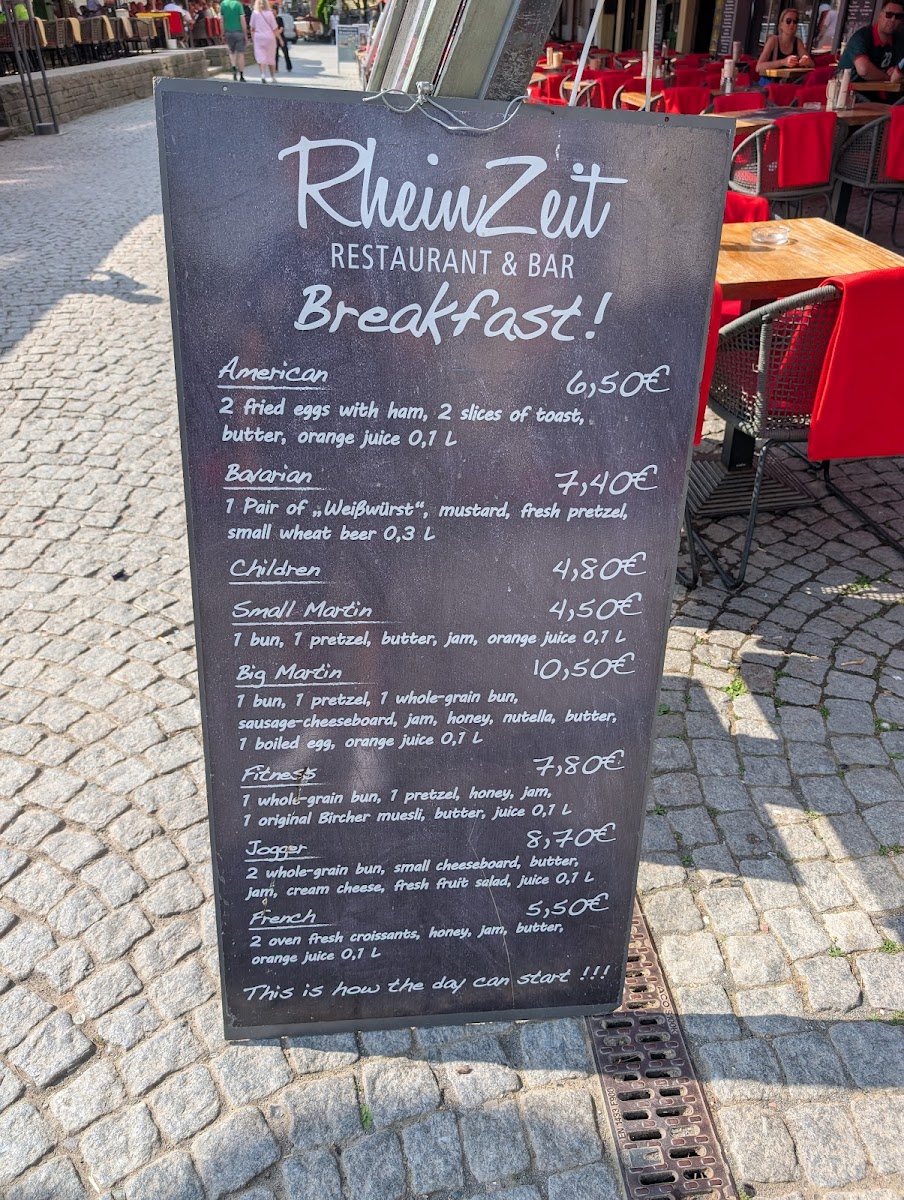 RheinZeit
RESTAURANT & BAR
Breakfast!
American 6,50€
2 fried eggs with ham, 2 slices of toast,
butter, orange juice 0,1 L
Bavarian 7,40€
1 Pair of „Weißwürst“, mustard, fresh pretzel,
small wheat beer 0,3 L
Children 4,80€
Small Martin 4,50€
1 bun, 1 pretzel, butter, jam, orange juice 0,1 L
Big Martin 10,50€
1 bun, 1 pretzel, 1 whole-grain bun,
sausage-cheeseboard, jam, honey, nutella, butter,
1 boiled egg, orange juice 0,1 L
Fitness 7,80€
1 whole-grain bun, 1 pretzel, honey, jam,
1 original Bircher muesli, butter, juice 0,1 L
Jogger 8,70€
2 whole-grain bun, small cheeseboard, butter,
jam, cream cheese, fresh fruit salad, juice 0,1 L
French 5,50€
2 oven fresh croissants, honey, jam, butter,
orange juice 0,1 L
This is how the day can start !!!